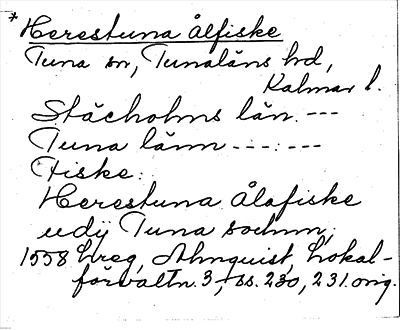 * Herestuna ålfiske
Tuna sn, Tunaläns hd,
Kalmar l.
Stächolms län. ---
Tuna länn ---:---
Fiske:
Herestuna Ålafiske
udij Tuna sochnn,
1558 Lreg, Almquist, Lokal-
förvaltn. 3, ss. 230, 231. orig.